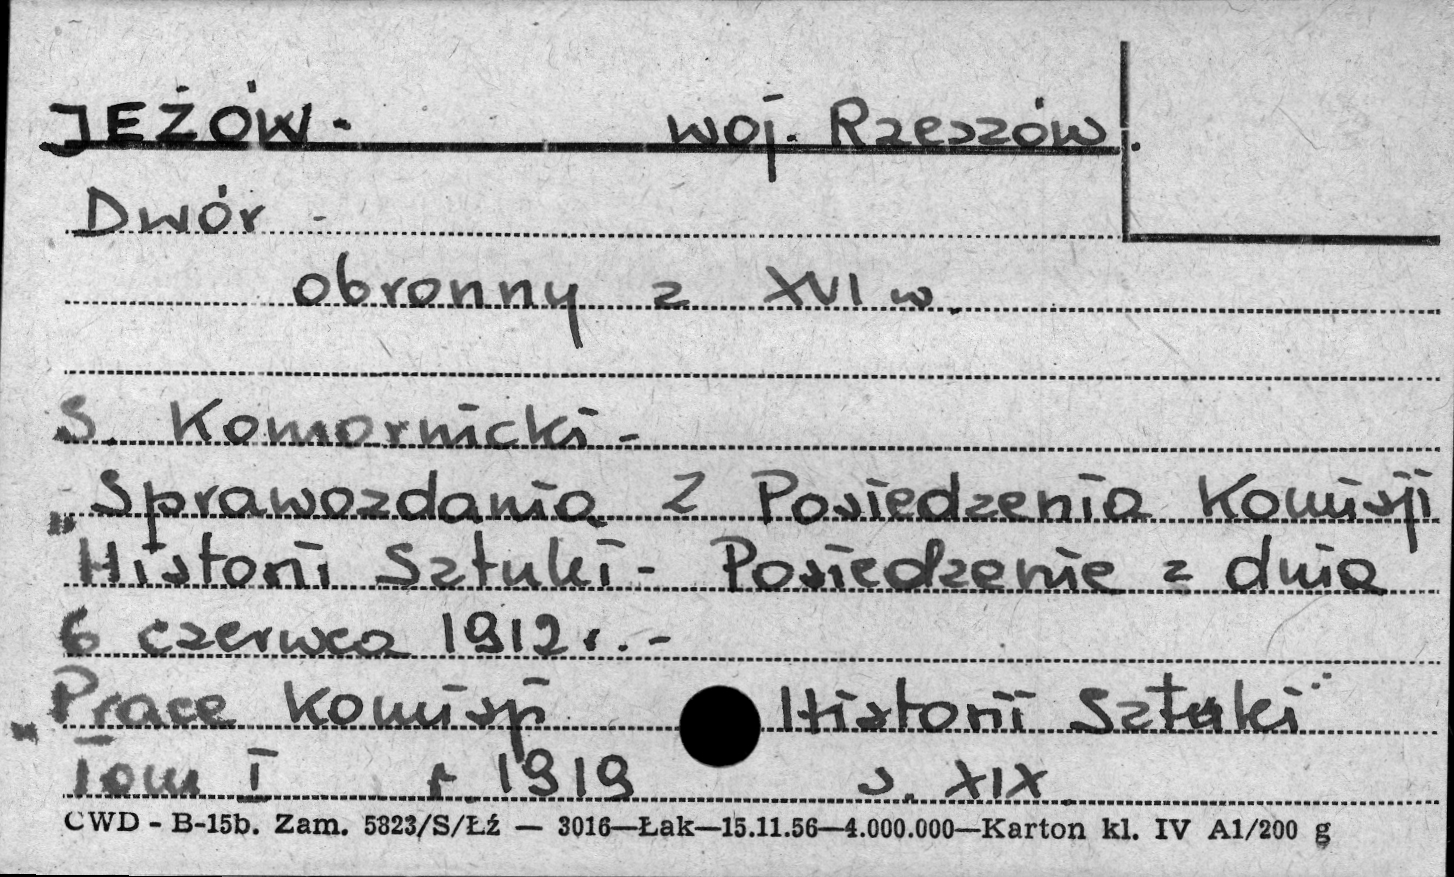 JEŻÓW - woj. Rzeszów.
Dwór -
obronny z XVI w.
S. Komornicki -
„Sprawozdania z Posiedzenia Komisji
Historii Sztuki - Posiedzenie z dnia
6 czerwca 1912 r. -
„Prace Komisji Historii Sztuki"
Tom I r. 1919 s. XIX
CWD - B-15b. Zam. 5823/S/Łź — 3016—Łak—15.11.56—4.000.000—Karton kl. IV A1/200 g